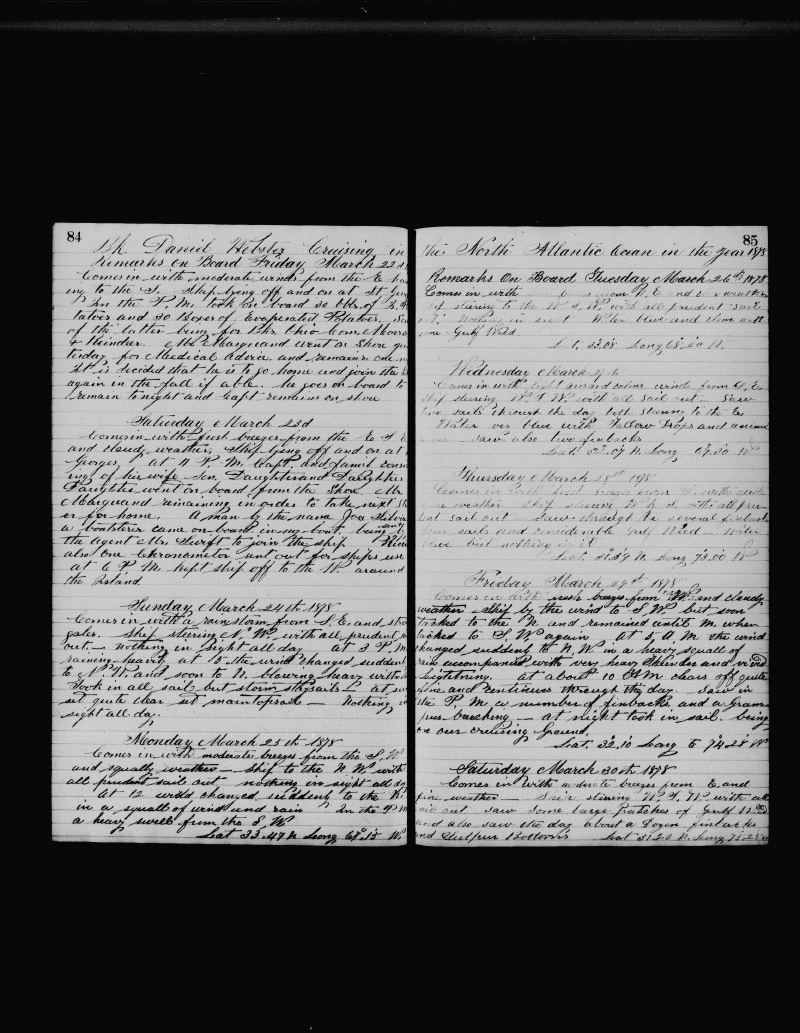 84
Bk Daniel Webster Cruising in
Remarks On Board Friday March 22
Comes in with moderate winds from the E
ing to the S. Ship lying off and on at St
In the P.M. Took on board 30 bbls. of
tatoes and 30 Boxes of Evaporated Potatoes.
of the latter being for Bks Ohio
Mr Marquand went on Shore
terday for Medical Advice and remains
It is decided that he is to go home and join the
again in the fall if able. he goes on board to
remain tonight and Capt remains on shore
Saturday March 23d
Comes in with fresh breezes from the E
and cloudy weather, Ship lying off and on at
Georges, at 4 P.M. Capt. and family
ing of his wife Son, Daughter and
went on board from the Shore. Mr.
Marquand remaining in order to take next
er for home. A man by the name Joe
a boatsterer came on board in my boat being
the agent Mr. to join the ship
also one Chronometer sent out for ships use
at 6 P.M. Kept ship off to the N. around
the Island
Sunday March 24th 1878
Comes in with a rainstorm from S.E. and
gales. Ship steering N.W. with all prudent
out. — nothing in sight all day at 3 P.M.
raining heavily at 5 the wind changed sudden
to N.W. and soon to N. blowing heavy with
Took in all sail but storm staysails — at
set quite clear set maintopsail — Nothing in
sight all day.
Monday March 25th 1878
Comes in with moderate breezes from the S.W
and squally weather — ship to the N.W. with
all prudent sail out — nothing in sight all
At 12 wind changed suddenly to the
in a squall of wind and rain In the P.M
a heavy swell from the S.W
Lat 33.47 N Long 68.15 W
85
the North Atlantic Ocean in the year 1878
Remarks On Board Tuesday March 26th 1878
Comes in with from N.E. and weather
ship steering to the W.S.W. with all prudent sail
out. Nothing in sight Water blue and clear with
some Gulf Weed.
Lat. 33.08 Long 68.20 W.
Wednesday March 27th
Comes in with light airs and calms winds from S.E.
Ship steering W.S.W. with all sail out — Saw
two sails through the day both steering to the E
Water very blue with
saw also two finbacks
Lat. 32.09 N. Long 69.30 W
Thursday March 28th 1878
Comes in with from S. with
weather — ship steering W by S. with all pru-
dent sail out Saw through the several finbacks
four sails and considerable Gulf Weed — Water
blue but nothing in it
Lat. 31.59 N. Long 73.00 W
Friday March 29th 1878
Comes in with fresh breezes from S.W. and cloudy
weather — ship by the wind to S.W. but soon
tacked to the N and remained until M. when
tacked to S.W. again at 5 A.M. the wind
changed suddenly to N.W. in a heavy squall of
rain accompanied with very heavy Thunder and vivid
Lightning. at about 10 A.M clears off quite
fine and continues through the day. Saw in
the P.M. a number of finbacks and a Gram-
pus breeching — at night took in sail. being
on our cruising Ground.
Lat. 32.10 Long 74.28 W
Saturday March 30th 1878
Comes in with moderate breezes from E. and
fine weather — Ship steering W.S.W. with all
sail out saw some large patches of Gulf Weed
and also saw the day about a Dozen finbacks
and Sulpur Bottoms Lat 31.20 N. Long 75.25